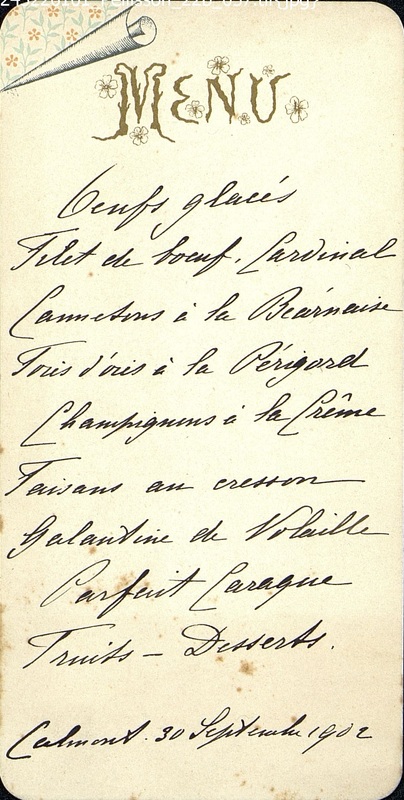 MENU
Oeufs glacés
Filet de boeuf. Cardinal
Cannetons à la Béarnaise
Foies d'oies à la Périgord
Champignons à la Crême
Faisans au cresson
Galantine de Volaille
Parfait Caraque
Fruits - Desserts.
Calmont. 30 Septembre 1902